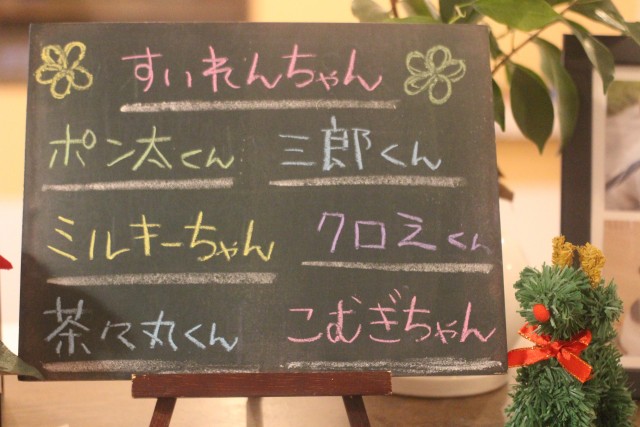 すいれんちゃん
ポン太くん 三郎くん
ミルキーちゃん クロミくん
茶々丸くん こむぎちゃん